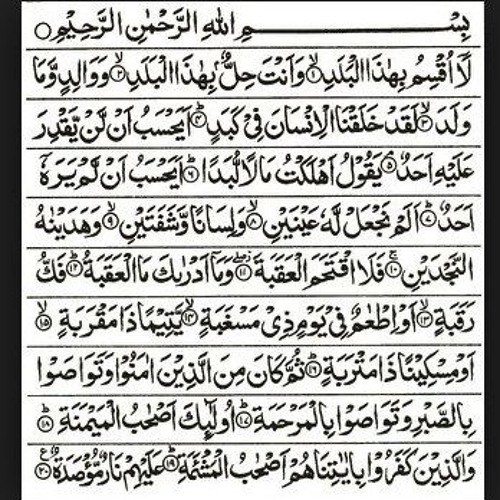 بِسْمِ اللهِ الرَّحْمٰنِ الرَّحِيْمِ ○
لَآ اُقْسِمُ بِهٰذَا الْبَلَدِ ۙ﴿۱﴾ وَاَنْتَ حِلٌّۢ بِهٰذَا الْبَلَدِ ۙ﴿۲﴾ وَوَالِدٍ وَّمَا
وَلَدَ ۙ﴿۳﴾ لَقَدْ خَلَقْنَا الْاِنْسَانَ فِيْ كَبَدٍ ؕ﴿۴﴾ اَيَحْسَبُ اَنْ لَّنْ يَّقْدِرَ
عَلَيْهِ اَحَدٌ ۘ﴿۵﴾ يَقُوْلُ اَهْلَكْتُ مَالًا لُّبَدًا ؕ﴿۶﴾ اَيَحْسَبُ اَنْ لَّمْ يَرَهٗۤ
اَحَدٌ ؕ﴿۷﴾ اَلَمْ نَجْعَلْ لَّهٗ عَيْنَيْنِ ۙ﴿۸﴾ وَلِسَانًا وَّشَفَتَيْنِ ۙ﴿۹﴾ وَهَدَيْنٰهُ
النَّجْدَيْنِ ۚ﴿۱۰﴾ فَلَا اقْتَحَمَ الْعَقَبَةَ ۖ﴿۱۱﴾ وَمَاۤ اَدْرٰىكَ مَا الْعَقَبَةُ ؕ﴿۱۲﴾ فَكُّ
رَقَبَةٍ ۙ﴿۱۳﴾ اَوْ اِطْعٰمٌ فِيْ يَوْمٍ ذِيْ مَسْغَبَةٍ ۙ﴿۱۴﴾ يَّتِيْمًا ذَا مَقْرَبَةٍ ۙ﴿۱۵﴾
اَوْ مِسْكِيْنًا ذَا مَتْرَبَةٍ ؕ﴿۱۶﴾ ثُمَّ كَانَ مِنَ الَّذِيْنَ اٰمَنُوْا وَتَوَاصَوْا
بِالصَّبْرِ وَتَوَاصَوْا بِالْمَرْحَمَةِ ؕ﴿۱۷﴾ اُولٰٓئِكَ اَصْحٰبُ الْمَيْمَنَةِ ؕ﴿۱۸﴾
وَالَّذِيْنَ كَفَرُوْا بِاٰيٰتِنَا هُمْ اَصْحٰبُ الْمَشْـَٔمَةِ ؕ﴿۱۹﴾ عَلَيْهِمْ نَارٌ مُّؤْصَدَةٌ ﴿۲۰﴾ ع